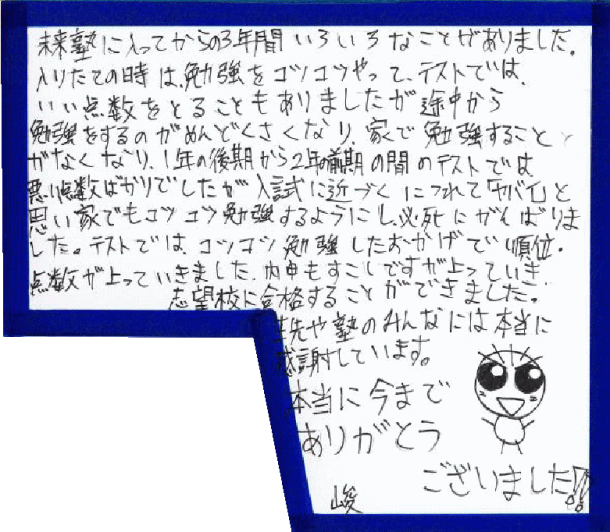 未来塾に入ってからの3年間いろいろなことがありました。
入りたての時は、勉強をコツコツやって、テストでは、
いい点数をとることもありましたが途中から
勉強をするのがめんどくさくなり、家で勉強すること
がなくなり、1年の後期から2年の前期の間のテストでは
悪い点数ばかりでしたが入試に近づくにつれて「ヤバイ」と
思い家でもコツコツ勉強するようにし、必死にがんばりま
した。テストでは、コツコツ勉強したおかげで順位・
点数が上っていきました。内申もすこしですが上っていき
志望校に合格することができました。
先や塾のみんなには本当に
感謝しています。
本当に今まで
ありがとう
ございました!!
峻